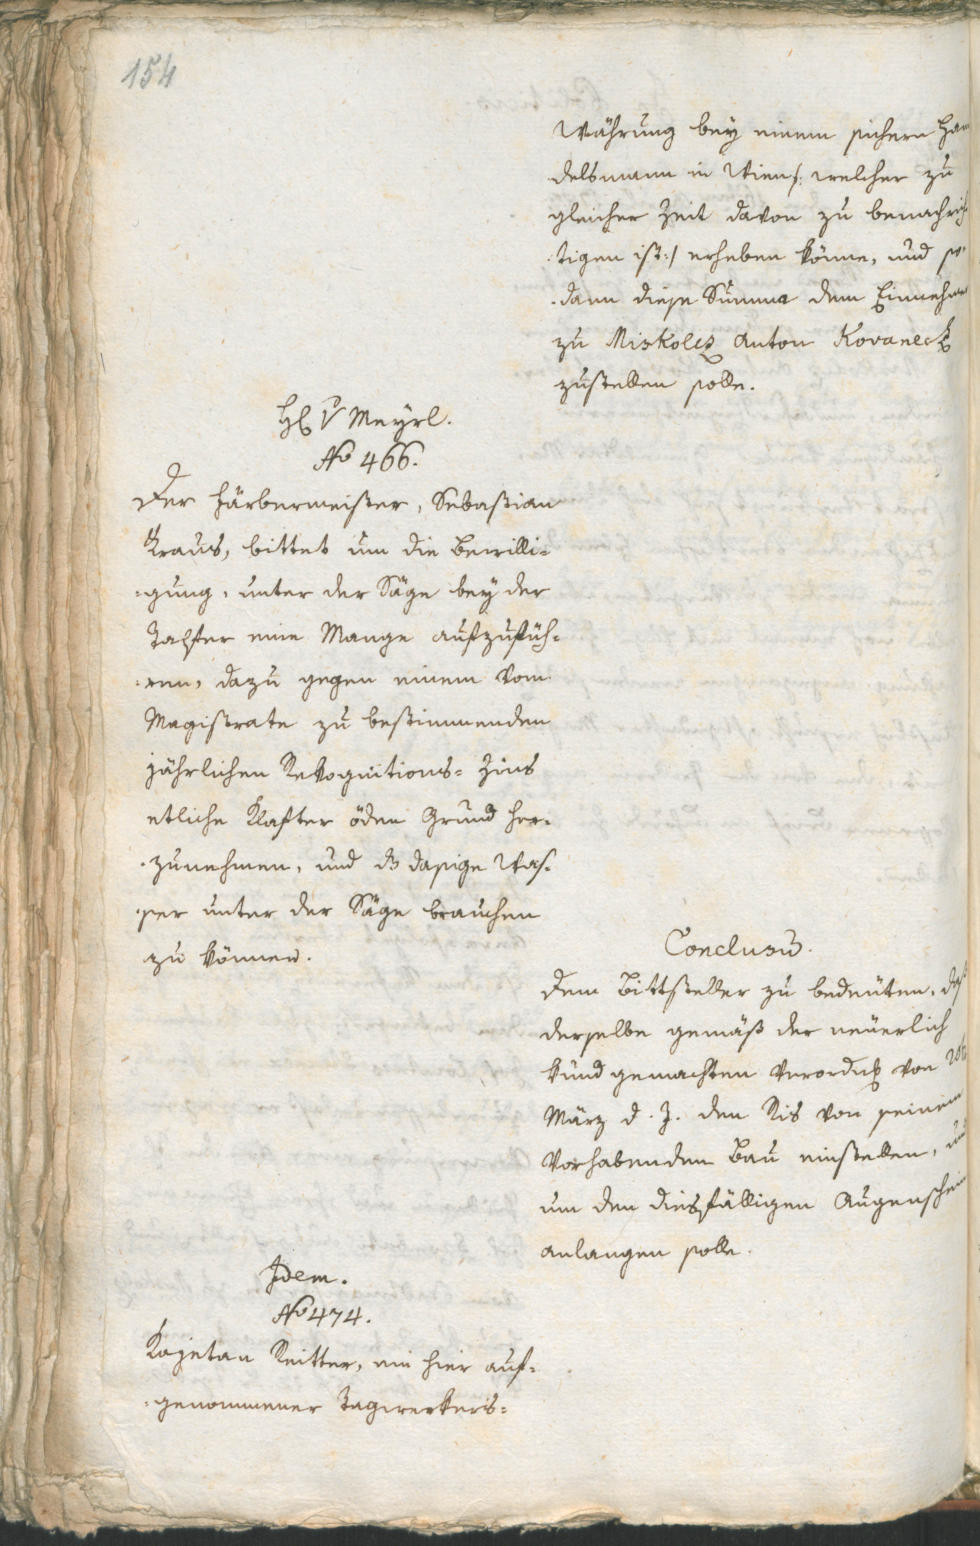 154
Währung bey einem sichern Han
delsmann in Wien /: welcher zu
gleicher Zeit davon zu benachrich
tigen ist :/ erheben könne, und so
dann diese Summa dem Einnehmer
zu Miskolcz Anton Kovaneck
zustellen solle.
H V Meyrl.
No 466.
Der Färbermeister, Sebastian
Kraus, bittet um die Bewilli=
=gung, unter der Säge bey der
eine Mange aufzufüh=
=ren, dazu gegen einem vom
Magistrate zu bestimmenden
jährlichen Rekognitions= Zins
etliche Klafter öden Grund her=
zunehmen, und dz dasige Was=
ser unter der Säge brauchen
zu können.
Conclusū.
Dem Bittsteller zu bedeuten, daß
derselbe gemäß der neuerlich
kund gemachten Verordng von
März d. J. den Ris von seinem
vorhabenden Bau einstellen, und
um den diesfälligen Augenschein
anlangen solle.
Idem.
No 474.
Kajetan Reitter, ein hier auf=
=genommener Tagwerkers=